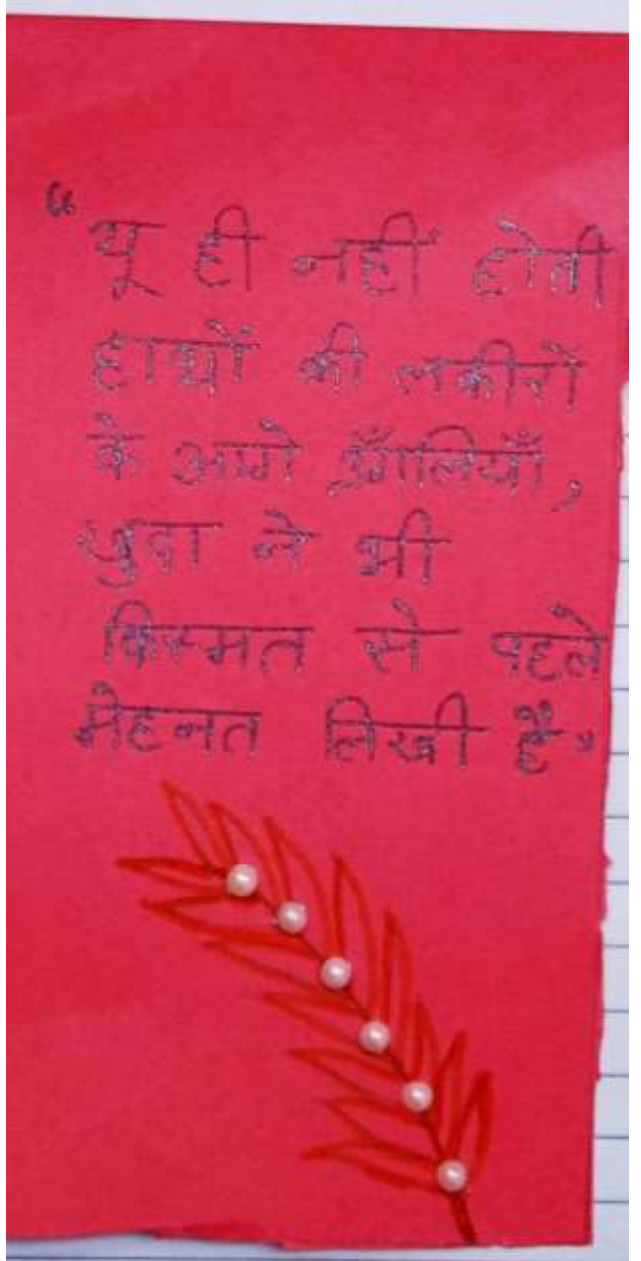 “यू ही नहीं होती
हाथों की लकीरों
के आगे उँगलियाँ,
खुदा ने भी
किस्मत से पहले
मेहनत लिखी है"